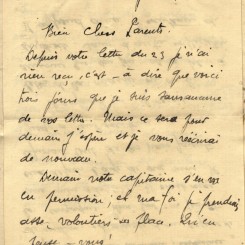 Bien Chers Parents.
Depuis votre lettre du 23 je n'ai
rien reçu, c'est-à dire que voici
trois jours que je suis sans
de vos lettres. Mais ce sera pour
demain j'espère et je vous
de nouveau.
Demain votre capitaine s'en va
en permission, et ma foi je prendrais
assez volontiers sa place. Qu'en
pensez-vous